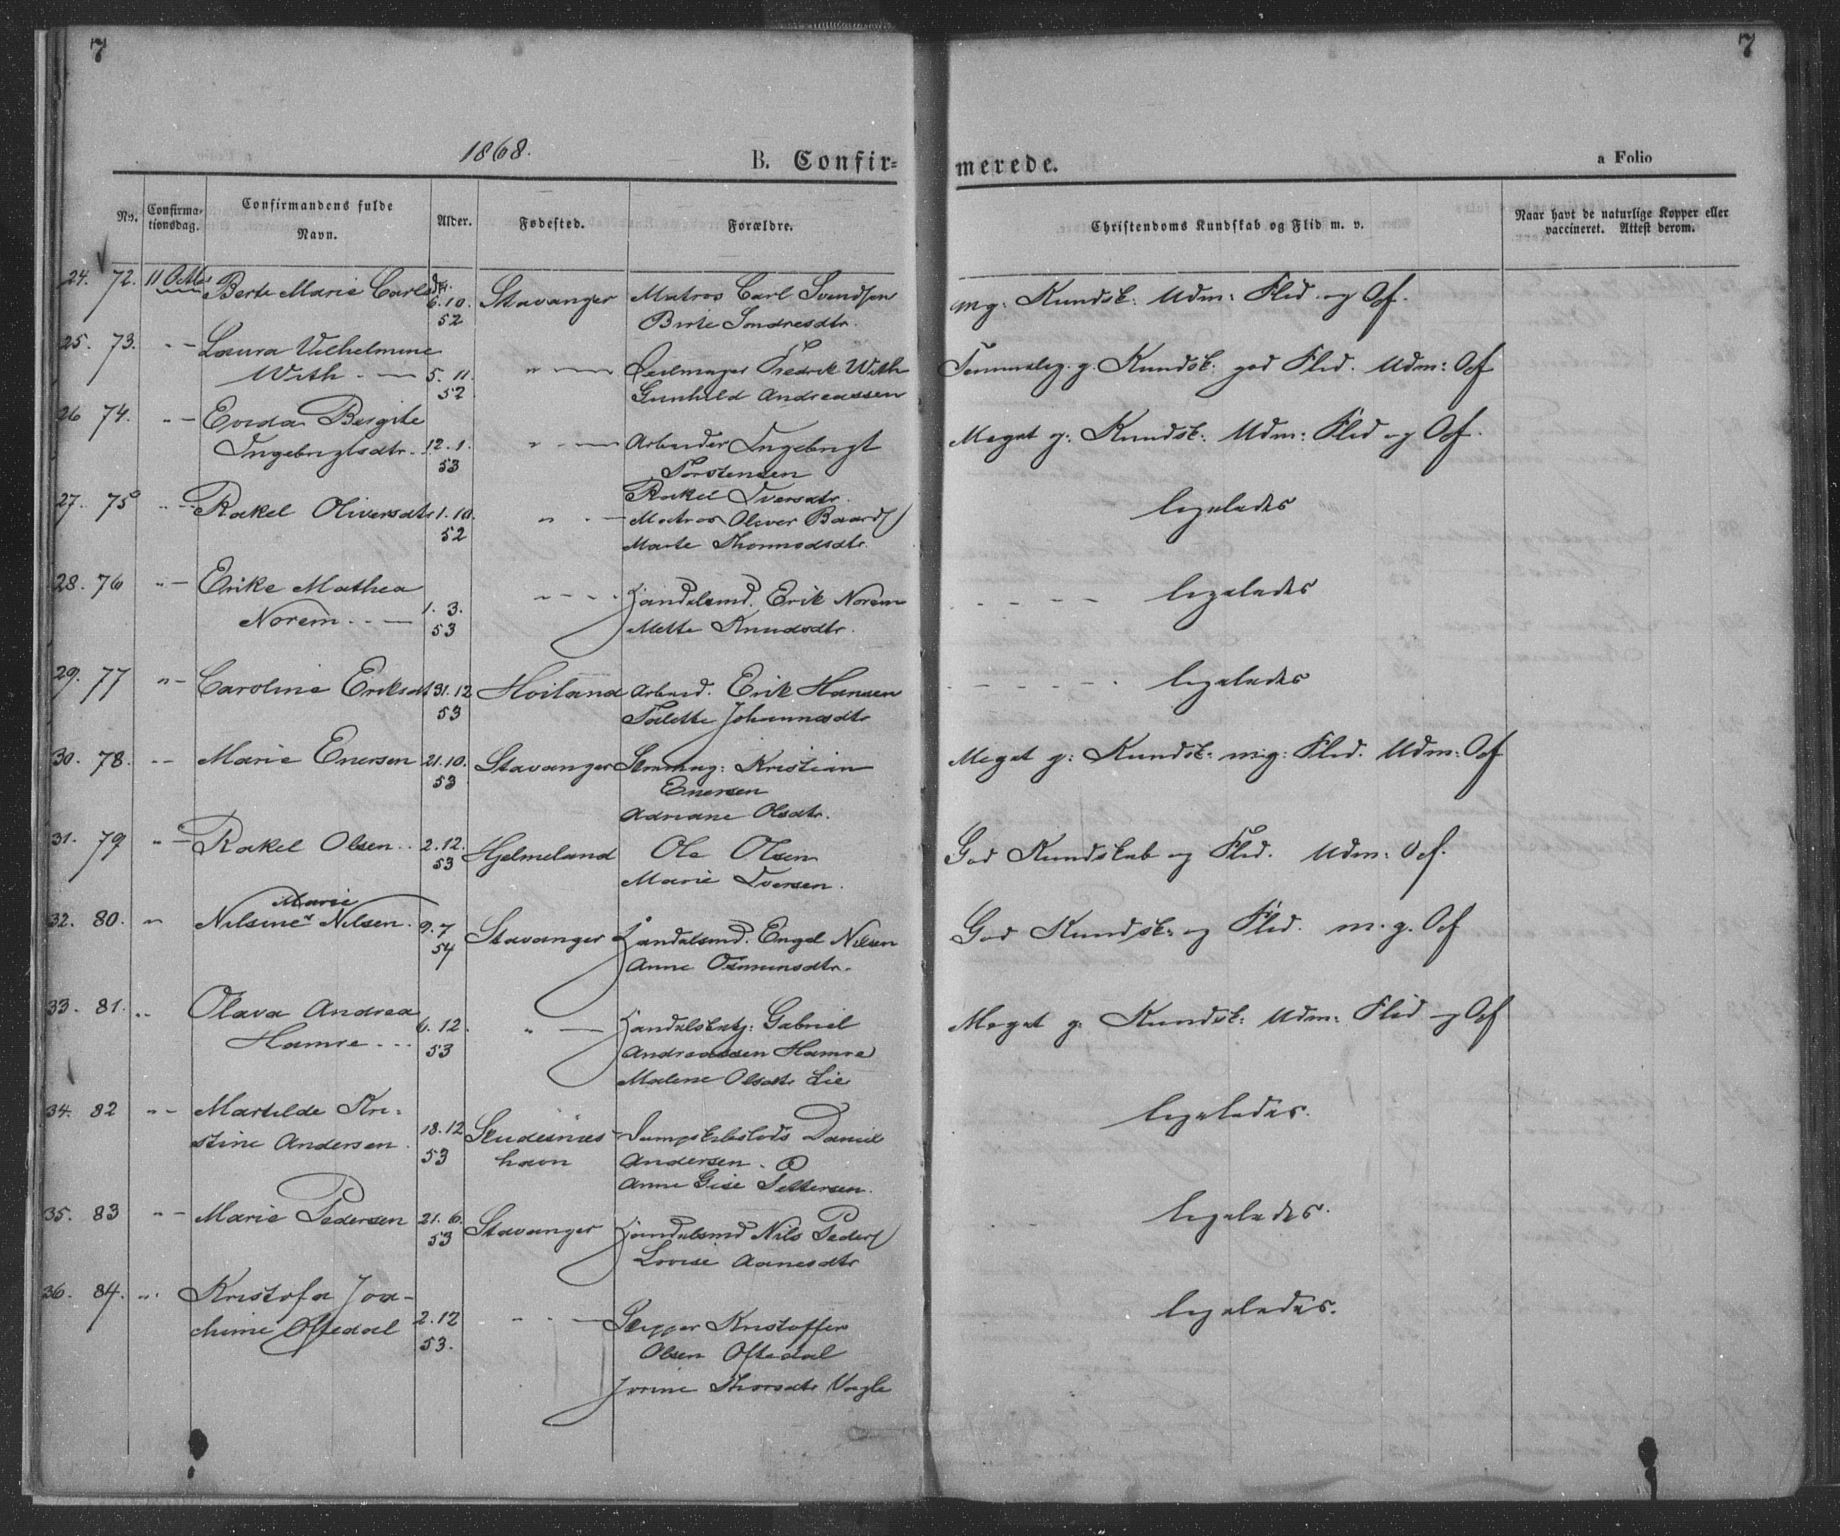 7
7
1868.
B. Confir-
merede.
a Folio
No.
Confirma-
tionsdag.
Confirmandens fulde
Navn.
Alder.
Fødested.
Forældre.
Christendoms Kundskab og Flid m. v.
Naar havt de naturlige Kopper eller
vaccineret. Attest derom.
24. 72. 11 Octbr Berte Marie Carlsdtr. 6.10. Stavanger Matros Carl Svendsen mg: Kundsk: Udm: Flid og Opf.
52 Birte Sondresdtr.
25. 73. " — Laura Vilhelmine
With. — 5. 11. " — Seilmager Fredrik With Temmelig g. Kundsk: god Flid. Udm: Opf
52 Gunhild Andreassen
26 74. " — Evida Birgite
Ingebrigtsdtr. 12. 1. " — Arbeider Ingebrigt Meget g: Kundsk: Udm: Flid og Opf.
53 Torstensen
Rakel Iversdtr.
27. 75 " — Rakel Oliversdtr 1. 10. " — Matros Oliver Baards ligeledes
52 Marte Thormodsdtr.
28. 76 " — Erike Mathea
Norem. — 1. 3. " — Handelsmd. Erik Norem ligeledes
53 Mette Knudsdtr.
29. 77 " — Caroline Eriksdt 31. 12 Hoiland Arbeid. Erik Hansen ligeledes
53 Talette Johannesdtr
30. 78. " — Marie Enersen 21. 10. Stavanger Skomag: Kristian Meget g: Kundsk: mig: Flid. Udm: Opf
53 Enersen
Adriane Olsdtr.
31. 79 " — Rakel Olsen.. 2. 12. Hjelmeland Ole Olsen God Kundskab og Flid. Udm: Opf.
53 Marie Iversen.
Marie
32. 80. " Nilsine Nilsen. 9. 7 Stavanger Handelsmd. Engel Nilsen God Kundsk: og Flid. m. g. Opf
54 Anne Osmunsdtr.
33. 81. " Olava Andrea
Hamre... 6. 12. " — Handelsbetj: Gabriel Meget g: Kundsk: Udm: Flid og Opf
53 Andreassen Hamre
Malene Olsdtr Lie
34. 82 " — Martilde Kri-
stine Andersen. 18. 12 Skudesnæs- Dampskibslods Daniel ligeledes.
53 havn Andersen.
Anne Gise Pettersen.
35. 83 " — Marie Pedersen 21. 6. Stavanger Handelsmd Nils Peders ligeledes.
53 Lovise Aanesdtr
36. 84. " Kristofa Joa-
chime Oftedal 2. 12 " — Skipper Kristoffer ligeledes.
53. Olsen Oftedal
Jorine Thorsdtr Vagle